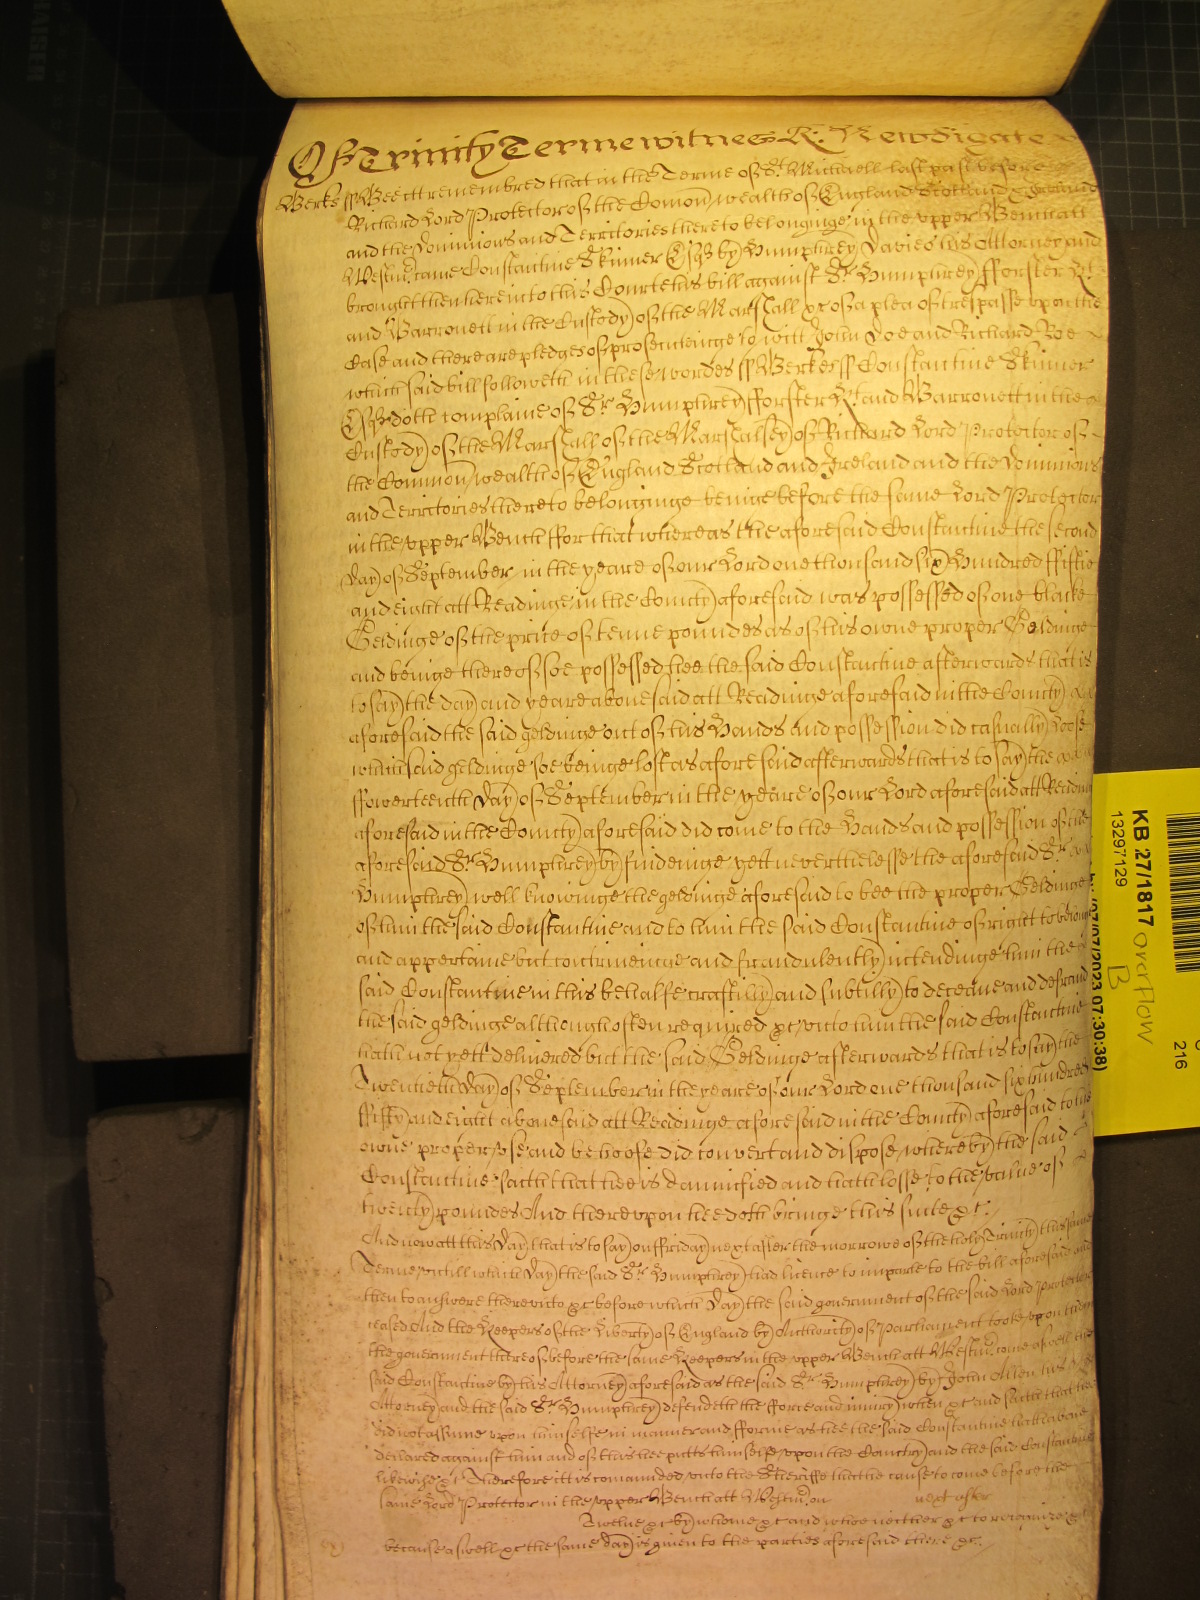 Of Trinity Terme witnes R: Newdigate
Berks ss Bee itt remembred that in the Terme of St. Michaell last past before
Richard Lord Protector of the Comon wealth of England Scotland & Ireland
and the Dominions and Territories thereto belonginge in the upper Bench att
Westmr. came Constantine Skinner Esqr by Humphrey Davies his Attorney and
brought then here into this Court his bill against Sr. Humphrey fforster Kt.
and Barronett in the Custody of the Marshall &c of a plea of trespasse upon the
Case and there are pledges of prosecuteinge to witt John Doe and Richard Roe
which said bill followeth in these wordes ss Berkes ss Constantine Skinner
Esqr doth complaine of Sr. Humphrey fforster Kt. and Barronett in the
Custody of the Marshall of the Marshalsey of Richard Lord Protector of
the Common wealth of England Scotland and Ireland and the Dominions
and Territories thereto belonginge beinge before the same Lord Protector
in the upper Bench ffor that whereas the aforesaid Constantine the second
day of September in the yeare of our Lord one thousand six Hundred ffiftie
and eight att Readinge in the County aforesaid was possessed of one blacke
Geldinge of the price of tenne poundes as of his owne proper Geldinge
and beinge thereof soe possessed hee the said Constantine afterwards that is
to say the day and yeare abovesaid att Readinge aforesaid in the County
aforesaid the said geldinge out of his Hands and possession did casually loose
which said geldinge soe beinge lost as aforesaid afterwards that is to say the
ffowerteenth day of September in the yeare of our Lord aforesaid att Readinge
aforesaid in the County aforesaid did come to the Hands and possession of the
aforesaid Sr. Humphrey by findeinge yett neverthelesse the aforesaid Sr.
Humphrey well knowinge the geldinge aforesaid to bee the proper Geldinge
of him the said Constantine and to him the said Constantine of right to belonge
and appertaine but contriveinge and fraudulently intendinge him the
said Constantine in this behalfe craftily and subtilly to deceave and defraud
the said geldinge although often required &c unto him the said Constantine
hath not yett delivered but the said Geldinge afterwards that is to say the
Twentieth day of September in the yeare of our Lord one thousand six hundred
ffifty and eight abovesaid att Readinge aforesaid in the County aforesaid to his
owne proper use and behoofe did convert and dispose whereby the said
Constantine saith that hee is damnified and hath losse to the value of
twenty poundes And thereupon hee doth bringe this suite &c.
And now att this day that is to say on ffriday next after the morrowe of the holy Trinity this same
Terme untill which day the said Sr. Humphrey had licence to imparle to the bill aforesaid and
then to answere thereunto &c before which day the said government of the said Lord Protector
ceased And the Keepers of the Liberty of England by Authority of Parliament tooke upon them
the government thereof before the same Keepers in the upper Bench att Westmr. come aswell the
said Constantine by his Attorney aforesaid as the said Sr. Humphrey by John Allen his
Attorney and the said Sr. Humphrey defendeth the fforce and iniury when &c and saith that hee
did not assume upon himselfe in manner and fforme as hee the said Constantine hath above
declared against him and of this hee putts himselfe upon the Country and the said Constantine
likewise &c Therefore itt is comanded unto the Sheriffe that he cause to come before the
same Lord Protector in the upper Bench att Westmr. on next after
Twelve &c by whome &c and whoe neither &c to recognize &c
because aswell &c the same day is given to the parties aforesaid there &c.
KB 27/1817 overflow
B
13297129
07/07/2023 07:30:38)
216